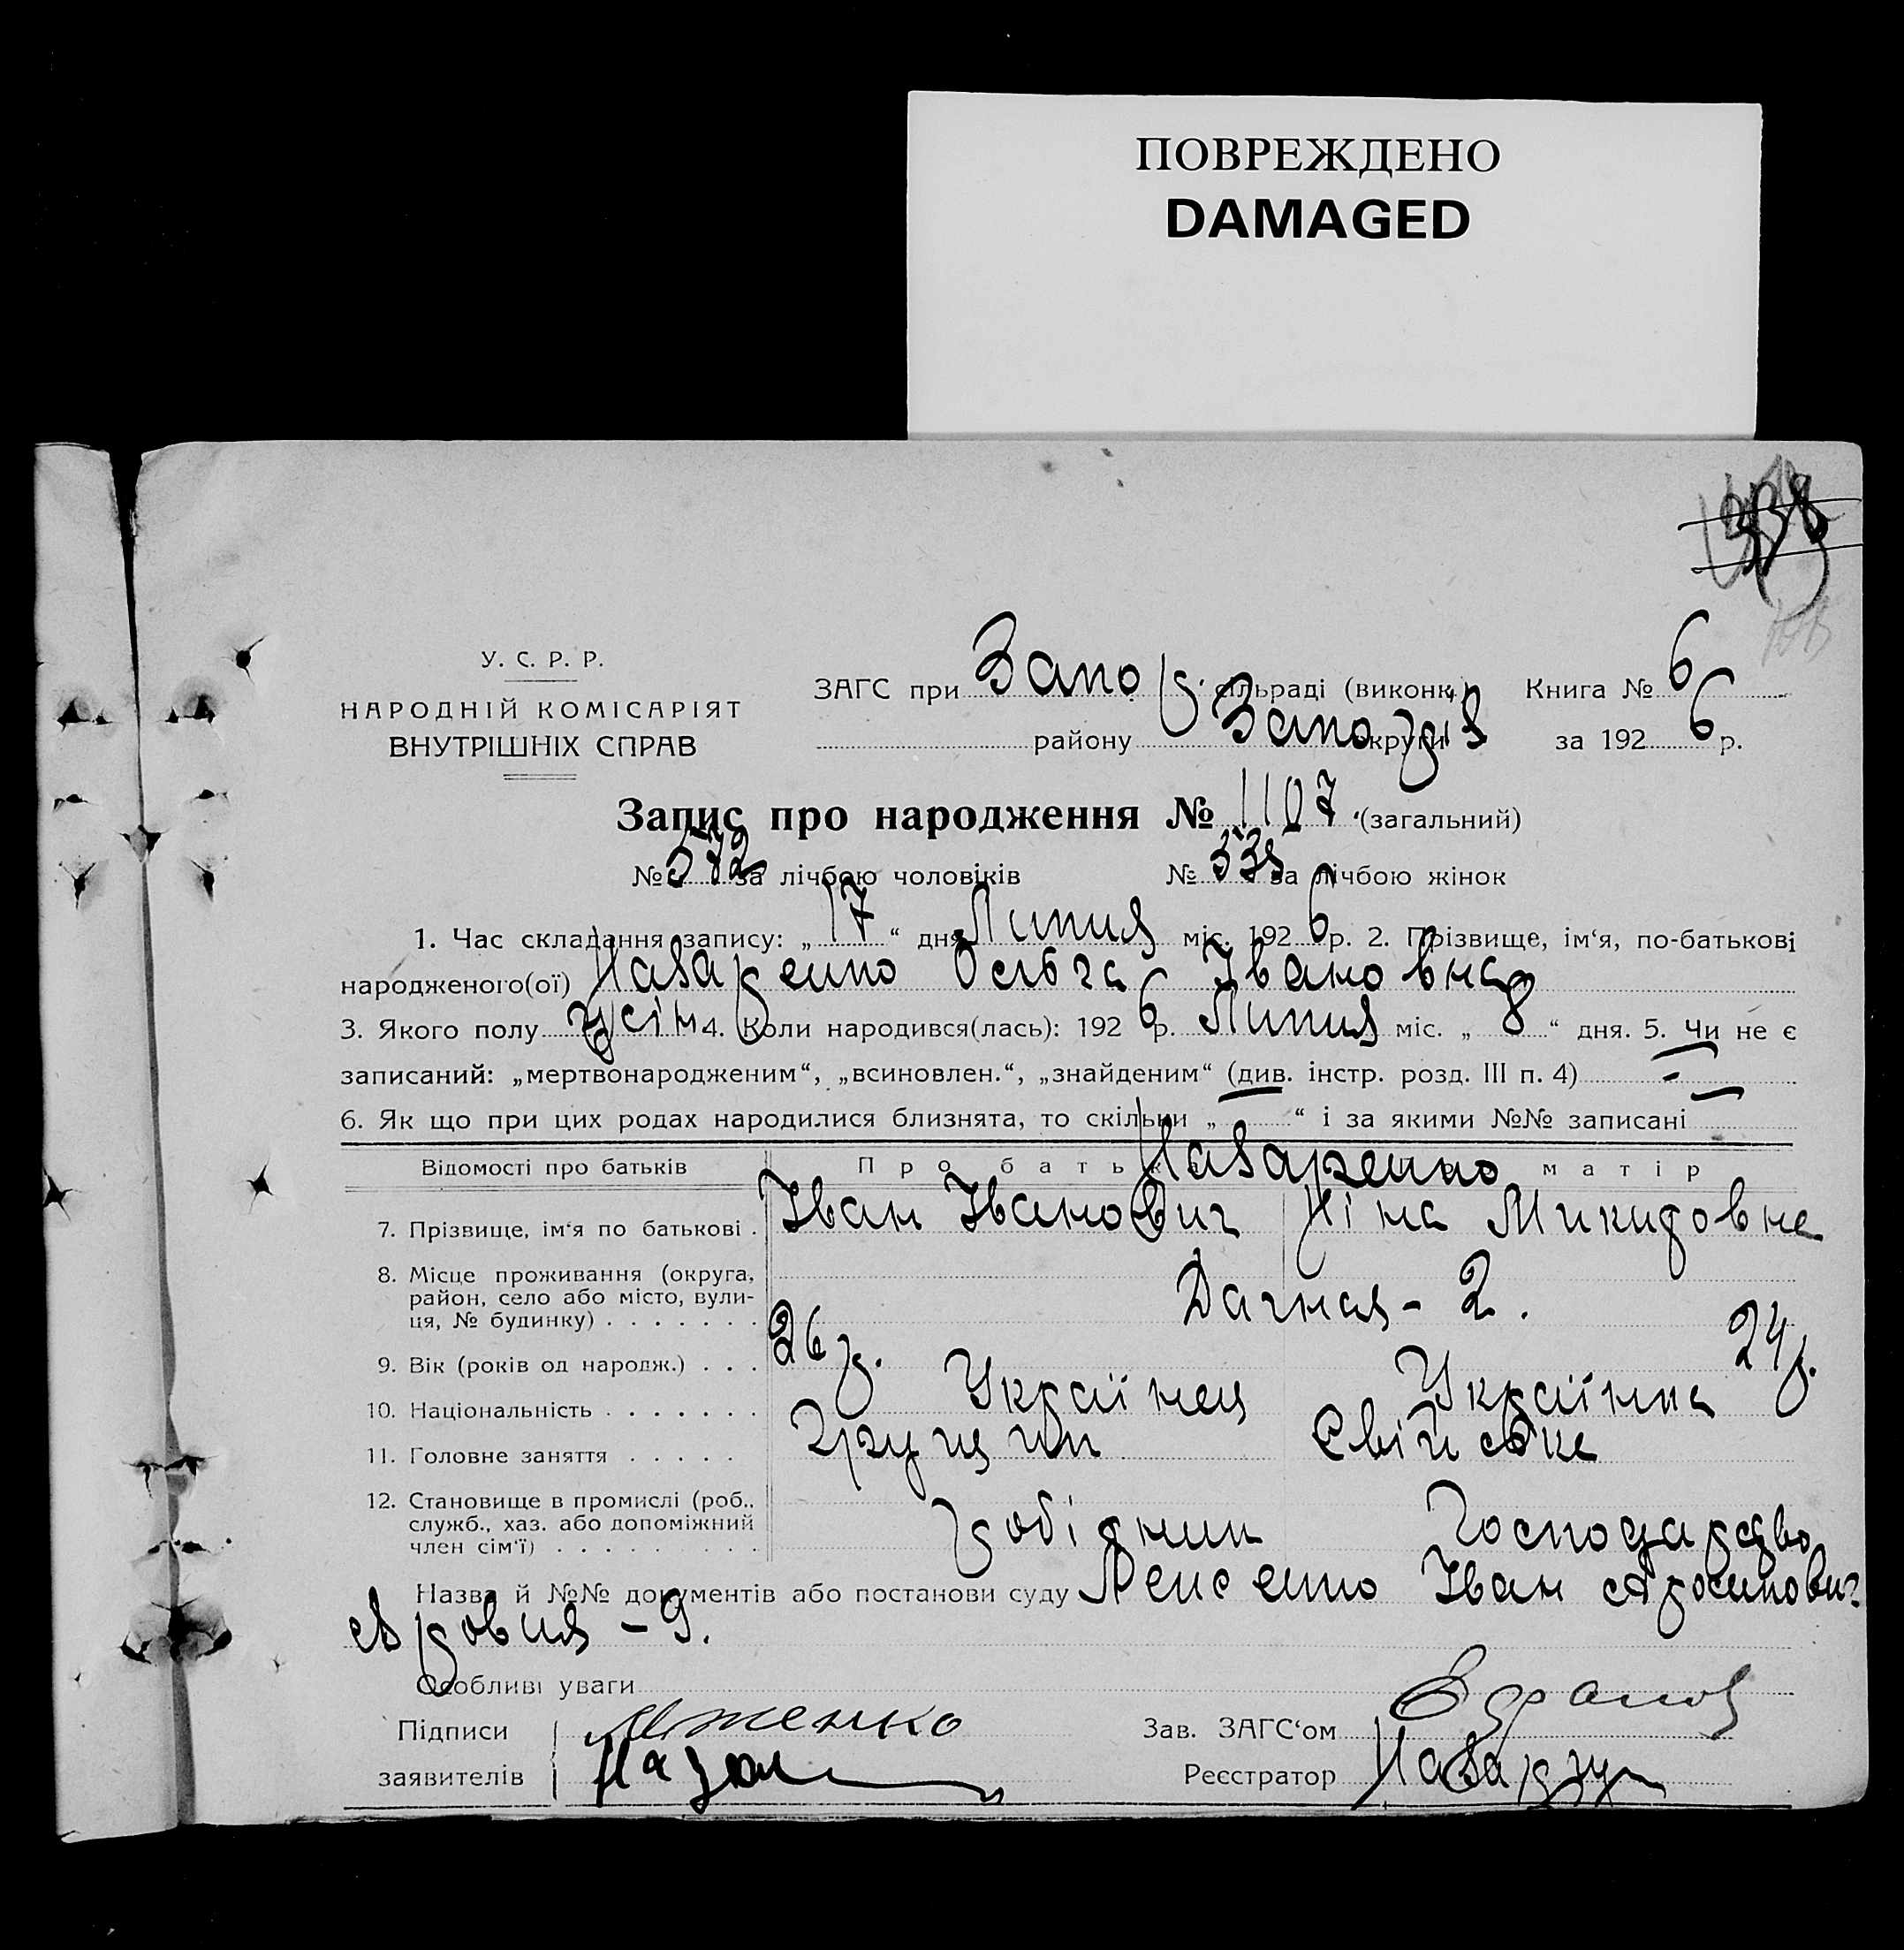 ПОВРЕЖДЕНО
DAMAGED
338
У. С. Р. Р.
НАРОДНІЙ КОМІСАРІЯТ
ВНУТРІШНІХ СПРАВ
ЗАГС при Запор. сільраді (виконк.) Книга № 6
району Запоріз округи за 1926 р.
Запис про народження № 1107 (загальний)
№ 572 за лічбою чоловіків № 535 за лічбою жінок
1. Час складання запису: „17“ дня Липня міс. 1926 р. 2. Прізвище, ім‘я, по-батькові
народженого(ої) Назаренко Ольга Івановна
3. Якого полу жін 4. Коли народився(лась): 1926 р. Липня міс. „8“ дня. 5. Чи не є
записаний: „мертвонародженим“, „всиновлен.“, „знайденим“ (див. інстр. розд. III п. 4) —
6. Як що при цих родах народилися близнята, то скільки „—“ і за якими №№ записані —
Відомості про батьків Про батька матір
Назаренко
7. Прізвище, ім‘я по батькові . Іван Іванович Ніна Микидовна
8. Місце проживання (округа,
район, село або місто, вули-
ця, № будинку) . . . . . . . Дачная - 2.
9. Вік (років од народж.) . . . 26 р. 24 р.
10. Національність . . . . . . . Українец Українка
11. Головне заняття . . . . . Грущик Свійське
12. Становище в промислі (роб.,
служб., хаз. або допоміжний
член сім‘ї) . . . . . . . . . робітник Господарство
Назва й №№ документів або постанови суду Іван
- 9.
Особливі уваги
Підписи
заявителів
Зав. ЗАГС‘ом
Реєстратор